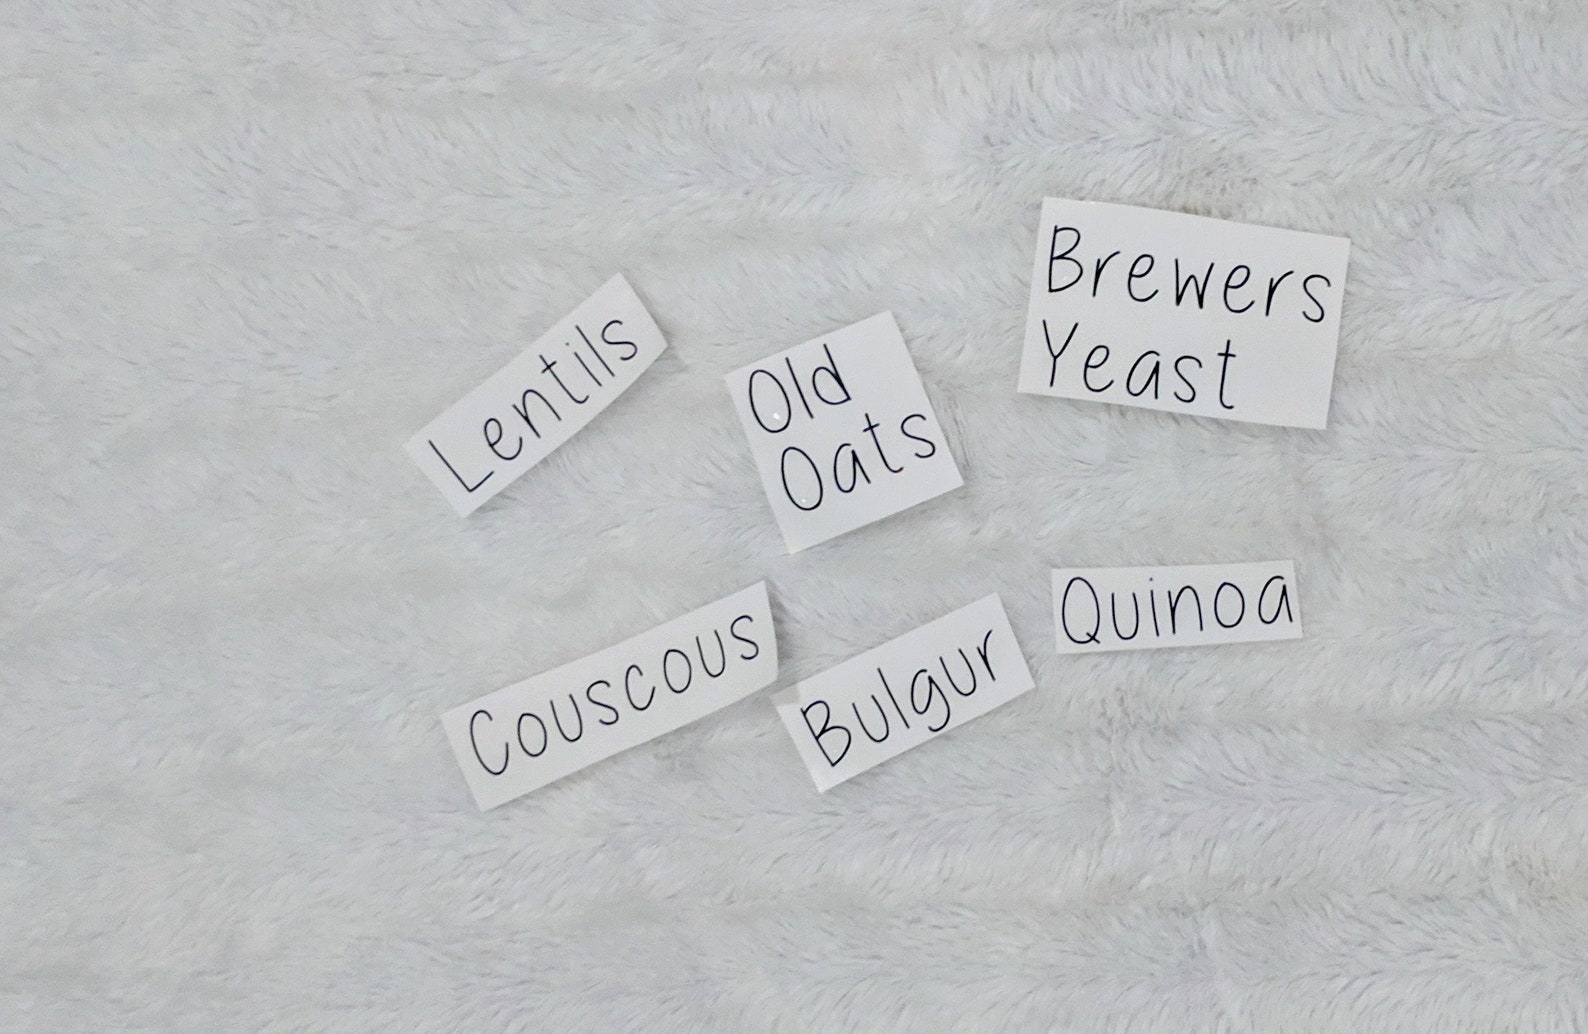 Lentils
Old
Oats
Brewers
Yeast
Couscous
Bulgur
Quinoa